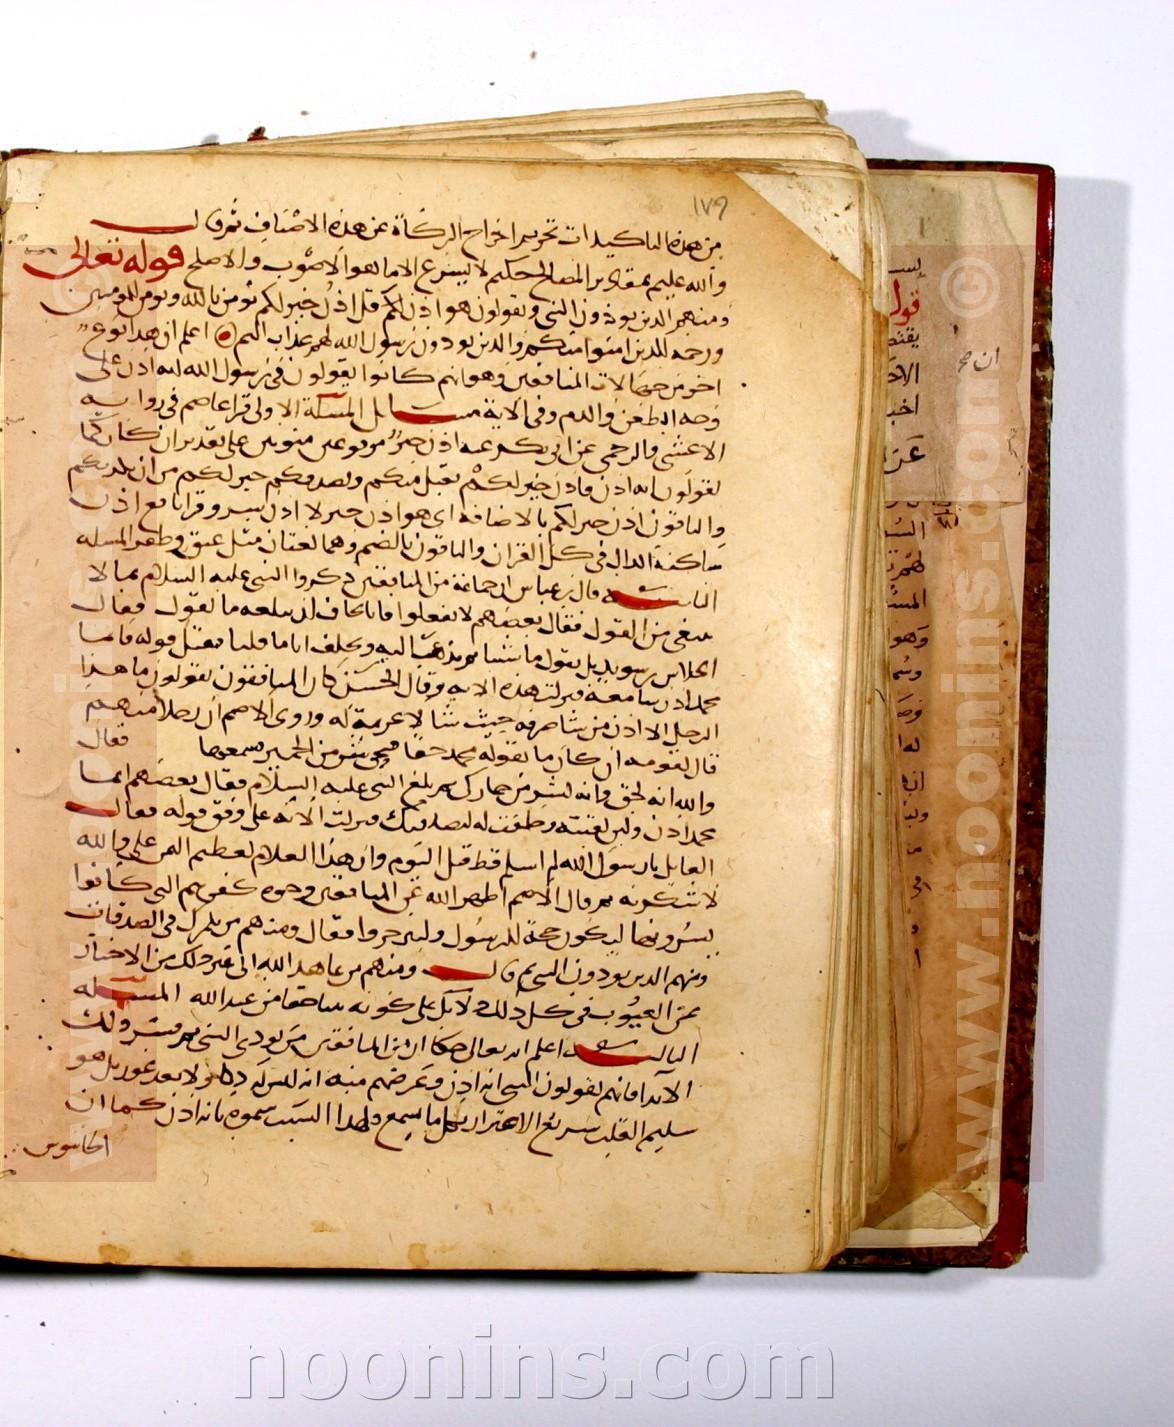 ١٧٩
من هذه التاكيدات تحريم اخراج الزكاة عن هذه الاصناف ثم قال
والله عليم بمقادير المصالح حكيم لا يشرع الا ما هو الاصوب والاصلح قوله تعالى
ومنهم الذين يوذون النبي ويقولون هو اذن الكم قل اذن خير لكم يومن بالله ويومن للمومنين
ورحمة للذين امنوا منكم والذين يوذون رسول الله لهم عذاب اليم اعلم ان هذا نوع
اخر من جهالات المنافقين وهو انهم كانوا يقولون في رسول الله انه اذن على
وجه الطعن والدم وفي الاية مسائل المسئلة الاولى قرا عاصم في رواية
الاعشى والرحمى عن ابي بكر عنه اذن خير مرفوعين منونين على تقدير ان كان كما
تقولون انه اذن فاذن خير لكم يقبل منكم ويصدقكم خير لكم من ان يكذبكم
والباقون اذن خير لكم بالاضافة اى هو اذن خير لا اذن شر وقرا نافع اذن
ساكنة الذال في كل القران والباقون بالضم وهما لغتان مثل عنق وظفر المسله
الثانيه قال بن عباس ان جماعة من المنافقين ذكروا النبي عليه السلام بما لا
ينبغى من القول فقال بعضهم لا تفعلوا فانا نخاف ان يبلغه ما نقول فقال
الجلاس بن سويد بل نقول ما شينا ثم نذهب اليه ونحلف انا ما قلنا فيقبل قوله فانما
محمد اذن سامعة فنزلت هذه الايه وقال الحسن كان المنافقون يقولون ما هذا
الرجل الا اذن من شا صرفه حيث شا لا عزيمة له وروى الاصم ان رجلا منهم
قال لقومه ان كان ما يقوله محمد حقا فنحن شر من الحمير فسمعها فقال
والله انه لحق وانه لشر من حمارك ثم بلغ النبي عليه السلام فقال بعضهم انما
محمد اذن ولين لقيته وحلفت له ليصدقنك فنزلت الاية على وفق قوله فقال
القايل يارسول الله لم اسلم قط قبل اليوم وان هذا الغلام لعظيم الثمن علي والله
لاشكرنه ثم قال الاصم اظهر الله عن المنافقين وجوه كفرهم التي كانوا
يسرونها ليكون حجة للرسول ولينزجروا فقال ومنهم من يلمزك في الصدقات
ومنهم الذين يوذون النبي ثم قال ومنهم من عاهد الله الى غير ذلك من الاخبار
عن الغيوب في كل ذلك دلايل على كونه نبيا حقا من عند الله المسله
الثالثه اعلم انه تعالى حكا ان من المنافقين من يوذى النبي ثم فسر ذلك
الايذا بانهم يقولون للنبي انه اذن وغرضهم منه انه ليس له ذكا ولا بعد غور بل هو
سليم القلب سريع الاغترار بكل ما يسمع ولهذا السبب سموه بانه اذن كما ان
الجاسوس
قول
ان صح
www.noonins.com ©
noonins.com